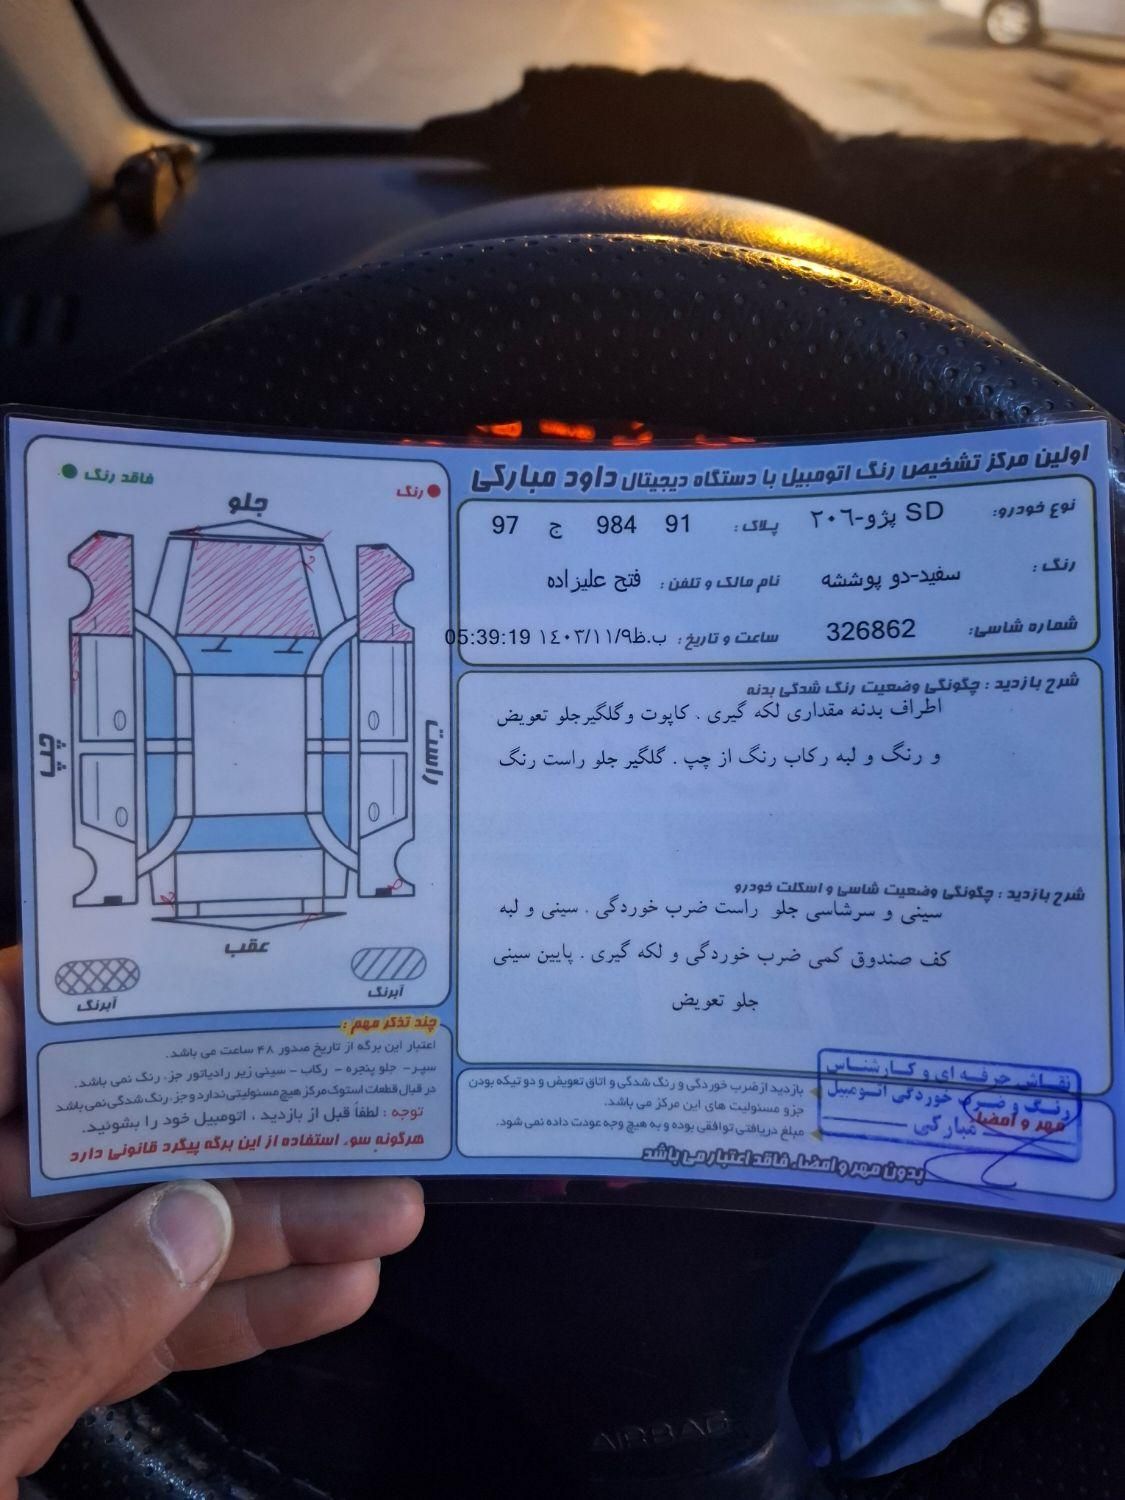 اولین مرکز تشخیص رنگ اتومبیل با دستگاه دیجیتال داود مبارکی
نوع خودرو: SD پژو-٢٠٦ پلاک: 91 984 ج 97
رنگ: سفید-دو پوششه نام مالک و تلفن: فتح علیزاده
شماره شاسی: 326862 ساعت و تاریخ: ب.ظ١٤٠٣/١١/٩ 05:39:19
شرح بازدید: چگونگی وضعیت رنگ شدگی بدنه
اطراف بدنه مقداری لکه گیری . کاپوت وگلگیرجلو تعویض
و رنگ و لبه رکاب رنگ از چپ . گلگیر جلو راست رنگ
شرح بازدید: چگونگی وضعیت شاسی و اسکلت خودرو
سینی و سرشاسی جلو راست ضرب خوردگی . سینی و لبه
کف صندوق کمی ضرب خوردگی و لکه گیری . پایین سینی
جلو تعویض
بازدید از ضرب خوردگی و رنگ شدگی و اتاق تعویض و دو تیکه بودن
جزو مسئولیت های این مرکز می باشد.
مبلغ دریافتی توافقی بوده و به هیچ وجه عودت داده نمی شود.
بدون مهر و امضاء فاقد اعتبار می باشد
نقاش حرفه ای و کارشناس
رنگ و ضرب خوردگی اتومبیل
مهر و امضاء
مبارکی
فاقد رنگ
رنگ
جلو
چپ
راست
عقب
آبرنگ
آبرنگ
چند تذکر مهم:
اعتبار این برگه از تاریخ صدور ۴۸ ساعت می باشد.
سپر- جلو پنجره - رکاب - سینی زیر رادیاتور جزء رنگ نمی باشد.
در قبال قطعات استوک مرکز هیچ مسئولیتی ندارد و جزء رنگ شدگی نمی باشد
توجه : لطفاً قبل از بازدید ، اتومبیل خود را بشوئید.
هرگونه سوء استفاده از این برگه پیگرد قانونی دارد
AIRBAG